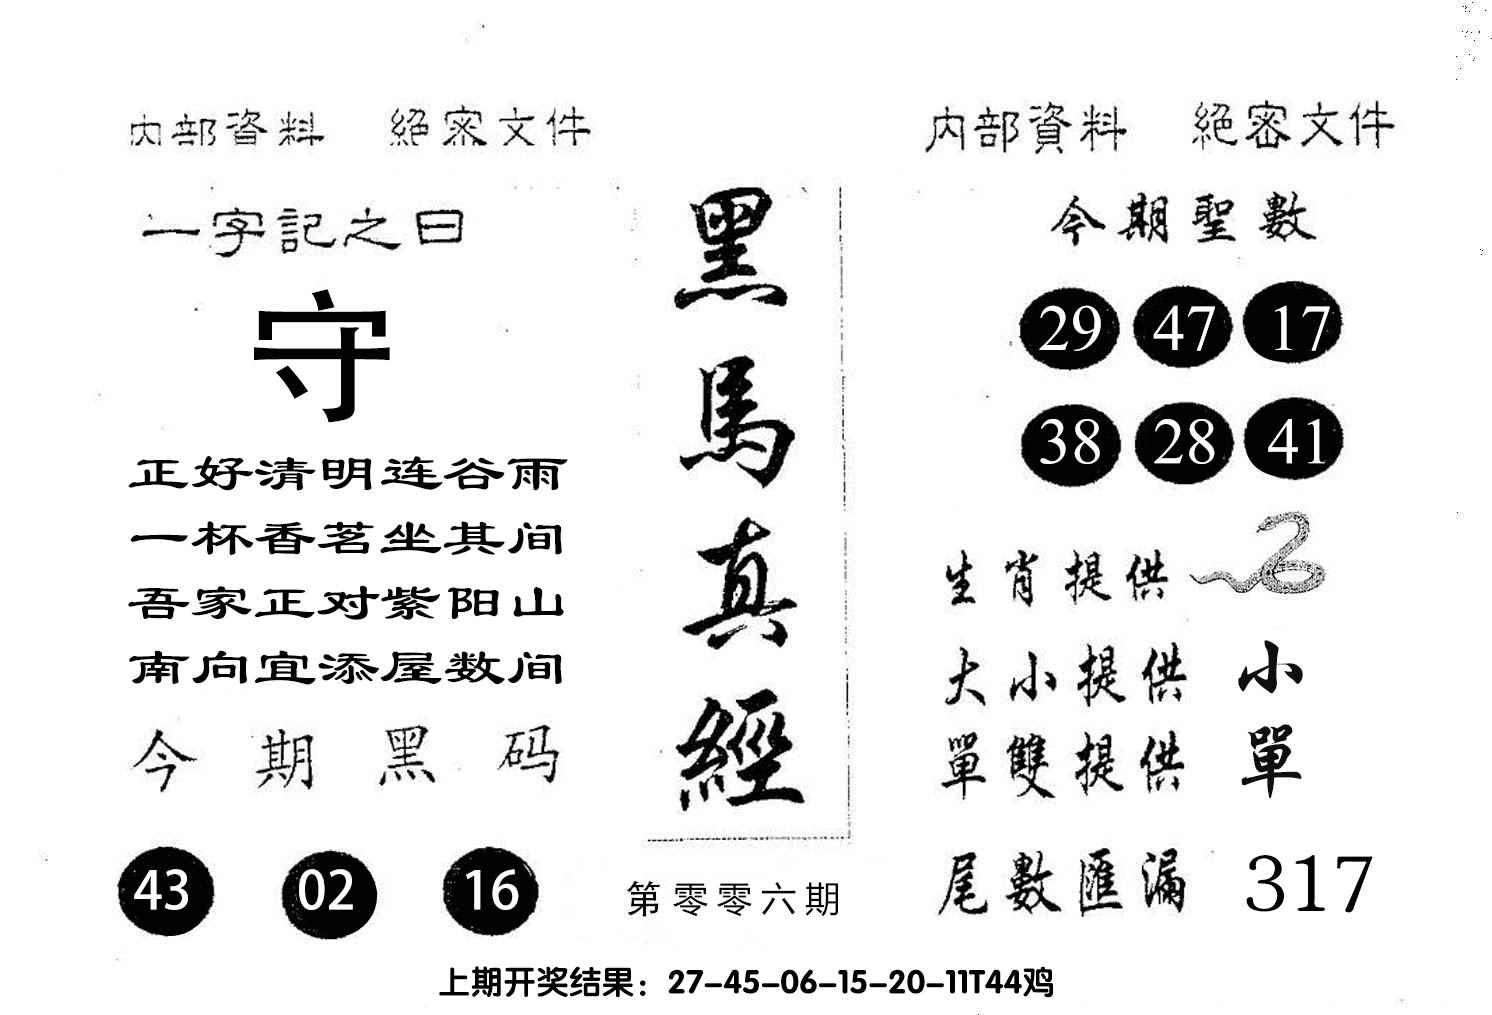 内部資料 絕密文件
一字記之曰
守
正好清明连谷雨
一杯香茗坐其间
吾家正对紫阳山
南向宜添屋数间
今期黑码
43 02 16
黑馬真經
第零零六期
内部資料 絕密文件
今期聖數
29 47 17
38 28 41
生肖提供
大小提供 小
單雙提供 單
尾數匯漏 317
上期开奖结果：27-45-06-15-20-11T44鸡